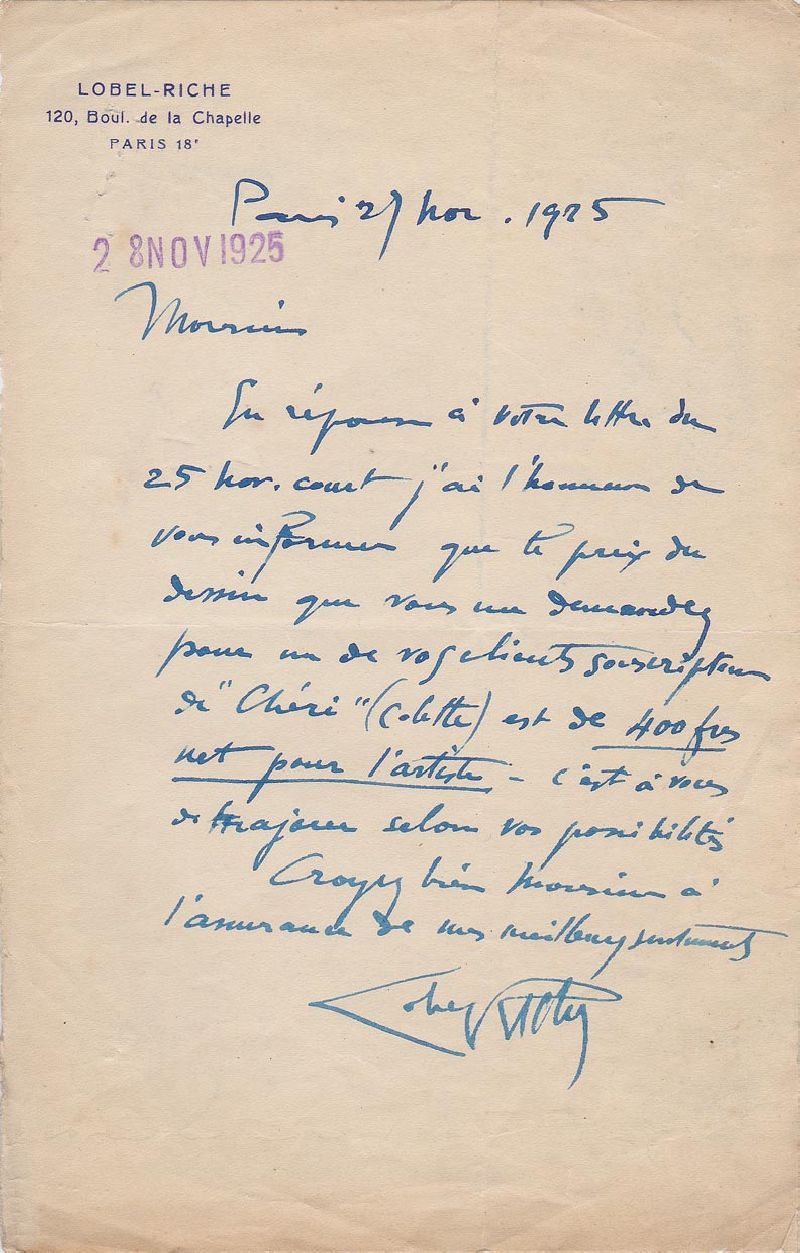 LOBEL-RICHE
120, Boul. de la Chapelle
PARIS 18e
Paris 27 nov. 1925
28 NOV 1925
Monsieur
En réponse à votre lettre du
25 nov. court j'ai l'honneur de
vous informer que le prix du
dessin que vous me demandez
pour un de vos clients souscripteur
de "Chéri" (Colette) est de 400 frs
net pour l'artiste - c'est à vous
de majorer selon vos possibilités
Croyez bien Monsieur à
l'assurance de mes meilleurs sentiments
Lobel Riche